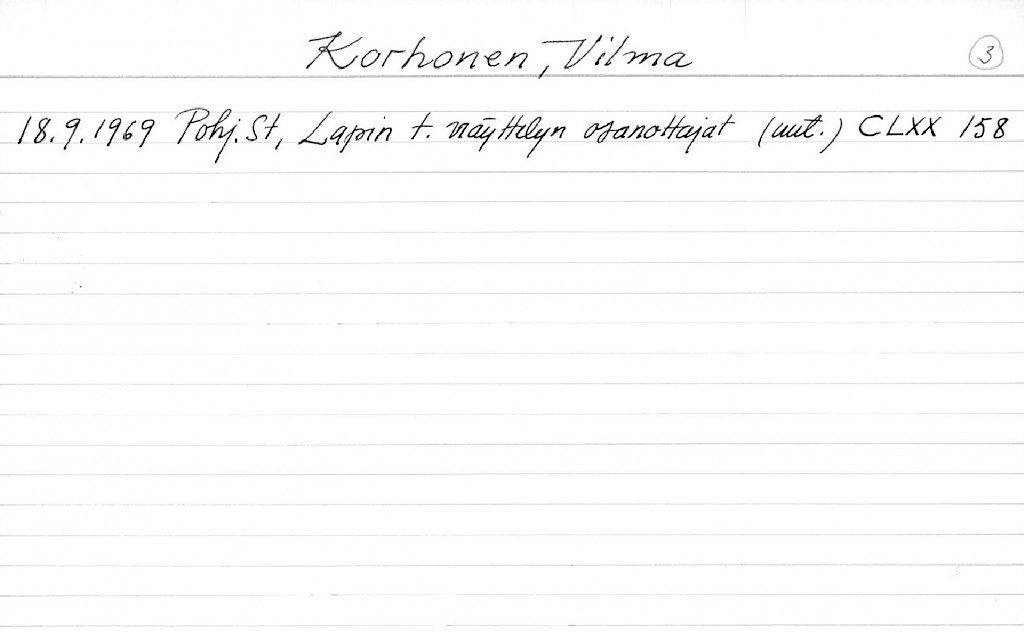 Korhonen, Vilma 3
18.9.1969 Pohj. St, Lapin t. näyttelyn osanottajat (uut.) CLXX 158